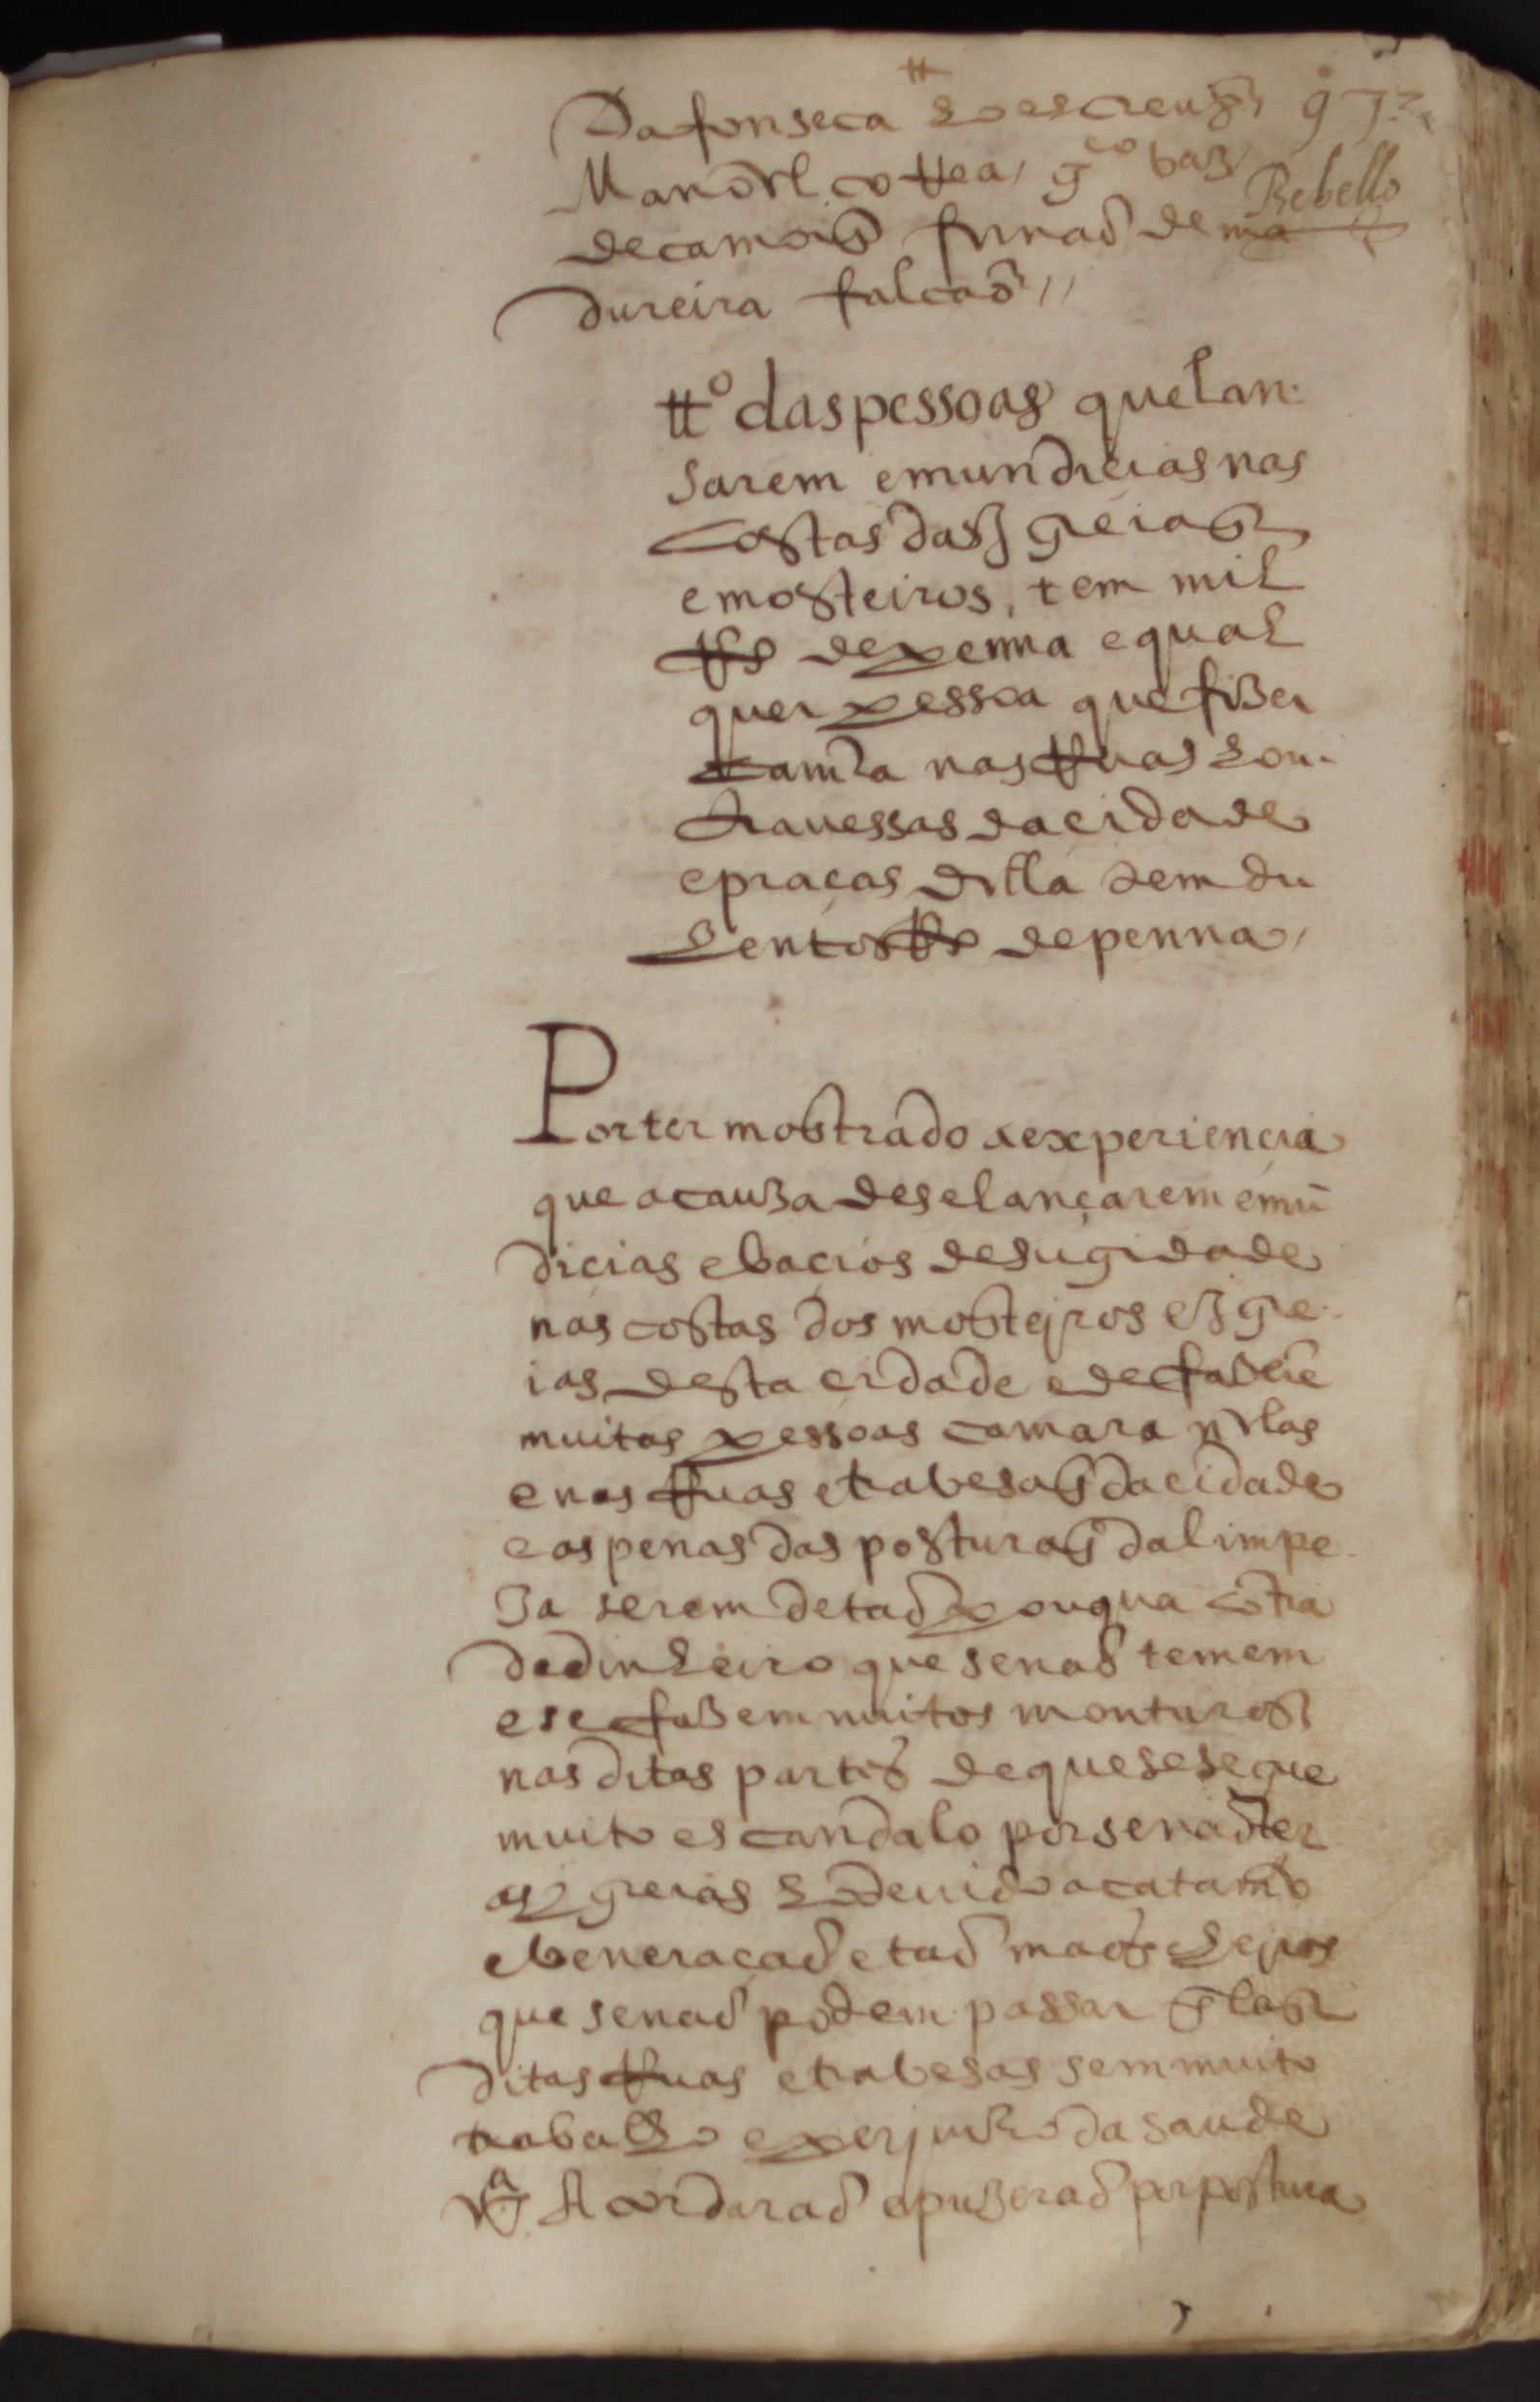 Dafonseca ho escreuy
Manoel correa, g.co vaz Rebello
decamois fernaõ de ma
dureira falcaõ //
tt.o das pessoas que lan.
sarem emundicias nas
costas das Igreias
e mosteiros, tem mil
Rs de penna e qual
quer pessoa que fizer
camra nas Ruas hou.
trauessas da cidade
e praças della tem du
zentos Rs de penna,
Por ter mostrado a experiencia
que a cauza de se lançarem emũ
dicias e bacios de sugidade
nas costas dos mosteiros e Igre.
ias desta cidade e de fazerẽ
muitas pessoas camara nellas
e nas Ruas e trabesas da cidade
e as penas das posturas da limpe.
za serem de taõ pouqua contia
de dinheiro que se naõ temem
e se fazem muitos monturos
nas ditas partes de que se segue
muito escandalo por se naõ ter
as Igreias ho deuido acatamto
e beneraçaõ e taõ maos cheiros
que se naõ podem passar pelas
ditas Ruas e trabesas sem muito
trabalho e perjuizo da saude
Acordaraõ e puzeraõ por postura